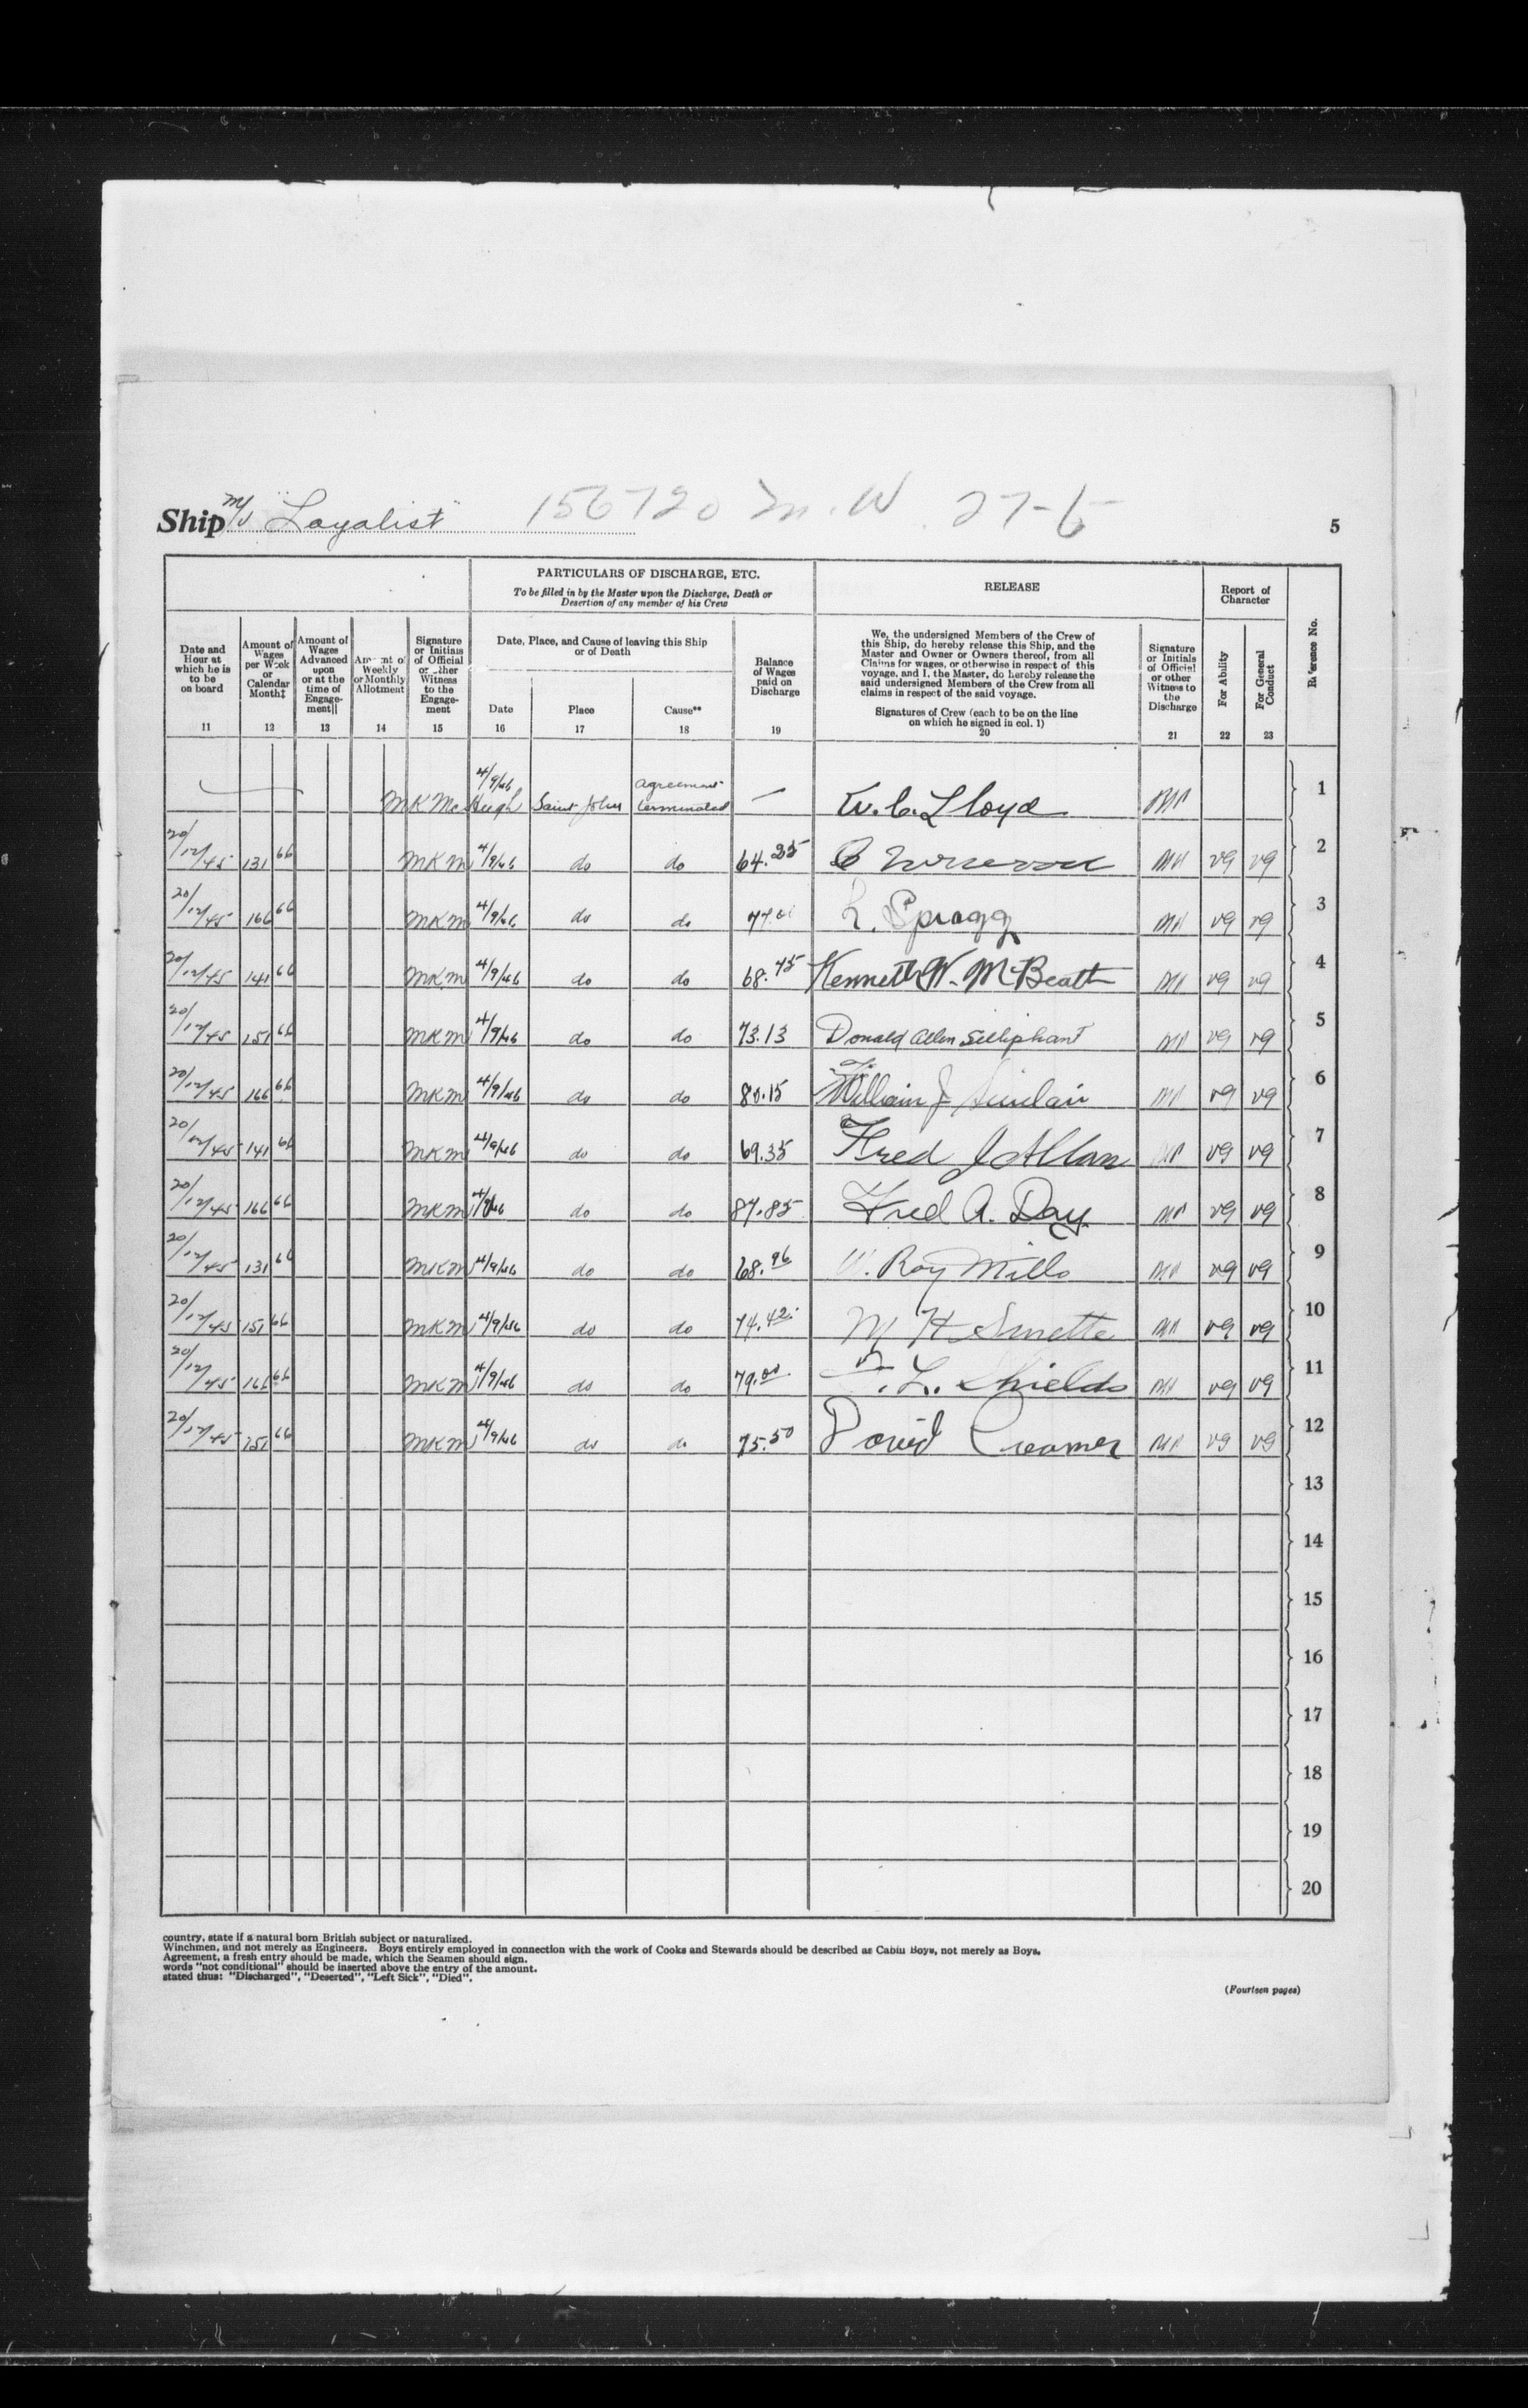 Ship M/V "Loyalist" 156720 M.W. 27-6 5
PARTICULARS OF DISCHARGE, ETC.
To be filled in by the Master upon the Discharge, Death or
Desertion of any member of his Crew
RELEASE
Report of
Character
Reference No.
Date and
Hour at
which he is
to be
on board
11
Amount of
Wages
per Week
or
Calendar
Month‡
12
Amount of
Wages
Advanced
upon
or at the
time of
Engage-
ment||
13
Amount of
Weekly
or Monthly
Allotment
14
Signature
or Initials
of Official
or other
Witness
to the
Engage-
ment
15
Date, Place, and Cause of leaving this Ship
or of Death
Date
16
Place
17
Cause**
18
Balance
of Wages
paid on
Discharge
19
We, the undersigned Members of the Crew of
this Ship, do hereby release this Ship, and the
Master and Owner or Owners thereof, from all
Claims for wages, or otherwise in respect of this
voyage, and I, the Master, do hereby release the
said undersigned Members of the Crew from all
claims in respect of the said voyage.
Signatures of Crew (each to be on the line
on which he signed in col. 1)
20
Signature
or Initials
of Official
or other
Witness to
the
Discharge
21
For Ability
22
For General
Conduct
23
MK McHugh 4/9/46 Saint John agreement terminated — W.C. Lloyd 1
20/12/45 131 66 MKM 4/9/46 do do 64.25 vg vg 2
20/12/45 166 66 MKM 4/9/46 do do L. Spragg vg vg 3
20/12/45 141 66 MKM 4/9/46 do do 68.75 Kenneth W. McBeath vg vg 4
20/12/45 151 66 MKM 4/9/46 do do 73.13 Donald Allen Selliphant vg vg 5
20/12/45 166 66 MKM 4/9/46 do do 80.15 William J Sinclair vg vg 6
20/12/45 141 66 MKM 4/9/46 do do 69.35 Fred J Allan vg vg 7
20/12/45 166 66 MKM 4/9/46 do do 87.85 Fred A. Day vg vg 8
20/12/45 131 66 MKM 4/9/46 do do 68.96 Roy Mills vg vg 9
20/12/45 151 66 MKM 4/9/46 do do 74.42 M H vg vg 10
20/12/45 166 66 MKM 4/9/46 do do 79.00 L. Shields vg vg 11
20/12/45 151 66 MKM 4/9/46 do do 75.50 David Creamer vg vg 12
13
14
15
16
17
18
19
20
country, state if a natural born British subject or naturalised.
Winchmen, and not merely as Engineers. Boys entirely employed in connection with the work of Cooks and Stewards should be described as Cabin Boys, not merely as Boys.
Agreement, a fresh entry should be made, which the Seamen should sign.
words "not conditional" should be inserted above the entry of the amount.
stated thus: "Discharged", "Deserted", "Left Sick", "Died".
(Fourteen pages)